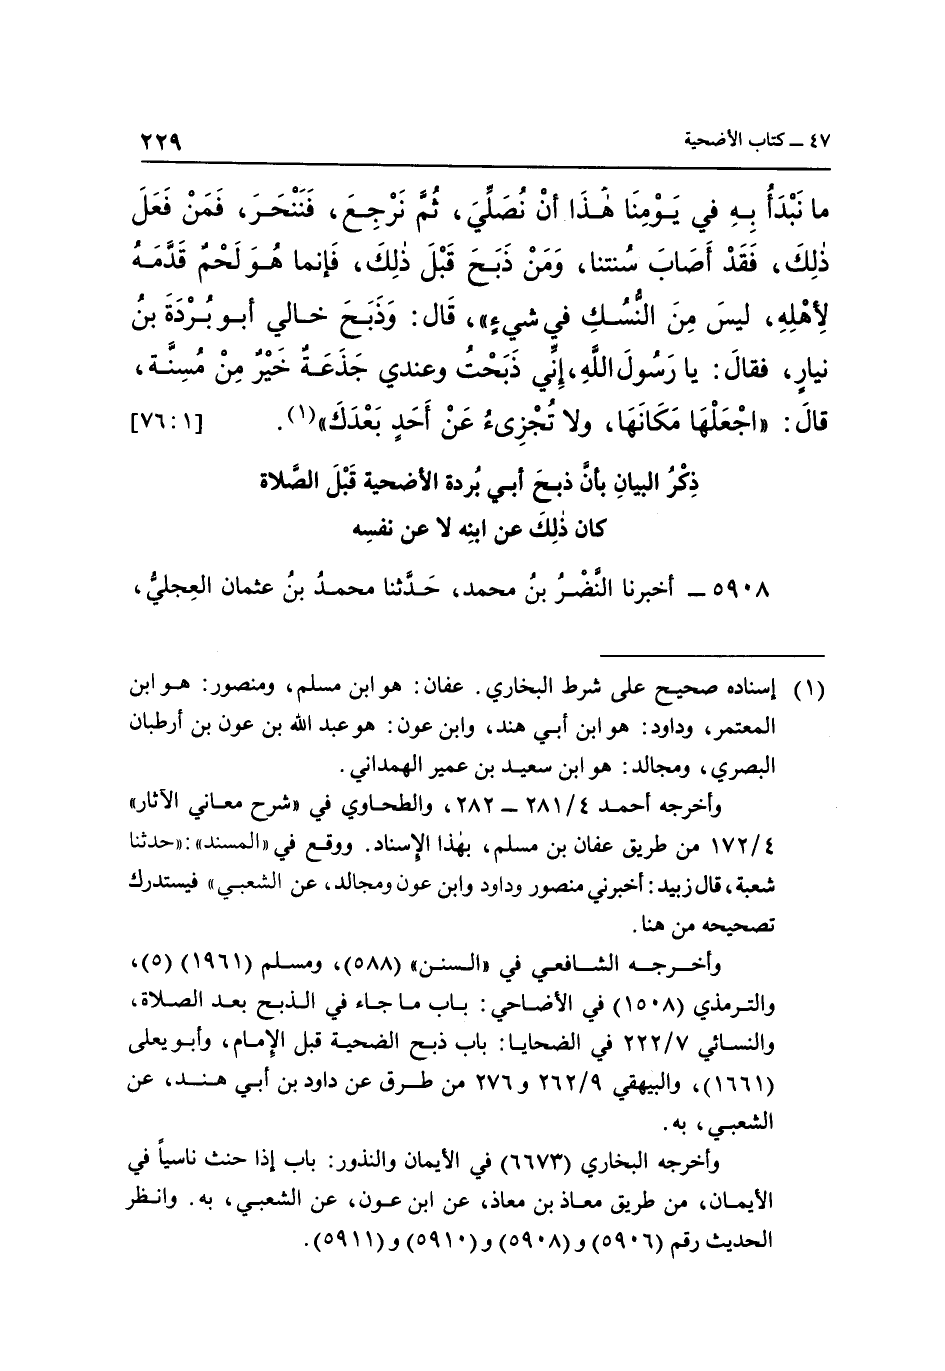 ٤٧ ــ كتاب الأضحية ٢٢٩
ما نَبْدَأُ بِهِ في يَوْمِنَا هٰذَا أنْ نُصَلِّيَ، ثُمَّ نَرْجِعَ، فَنَنْحَرَ، فَمَنْ فَعَلَ
ذٰلِكَ، فَقَدْ أَصَابَ سُنتنا، وَمَنْ ذَبَحَ قَبْلَ ذٰلِكَ، فَإنما هُوَ لَحْمٌ قَدَّمَهُ
لِأهْلِهِ، ليسَ مِنَ النُّسُكِ في شيءٍ»، قَال: وَذَبَحَ خالي أبو بُرْدَةَ بنُ
نيارٍ، فقالَ: يا رَسُولَ اللَّهِ، إِنِّي ذَبَحْتُ وعندي جَذَعَةٌ خَيْرٌ مِنْ مُسِنَّة،
قالَ: «اجْعَلْهَا مَكَانَهَا، ولا تُجْزِىءُ عَنْ أَحَدٍ بَعْدَكَ»(١). [٧٦:١]
ذِكْرُ البيانِ بأنَّ ذبحَ أبي بُردة الأضحية قَبْلَ الصَّلاة
كان ذٰلِكَ عن ابنِه لا عن نفسِه
٥٩٠٨ ــ أخبرنا النَّضْرُ بنُ محمد، حَدَّثنا محمدُ بنُ عثمان العِجليُّ،
(١) إسناده صحيح على شرط البخاري. عفان: هو ابن مسلم، ومنصور: هو ابن
المعتمر، وداود: هو ابن أبي هند، وابن عون: هو عبد الله بن عون بن أرطبان
البصري، ومجالد: هو ابن سعيد بن عمير الهمداني.
وأخرجه أحمد ٢٨١/٤ ــ ٢٨٢، والطحاوي في «شرح معاني الآثار»
١٧٢/٤ من طريق عفان بن مسلم، بهٰذا الإسناد. ووقع في «المسند»: «حدثنا
شعبة، قال زبيد: أخبرني منصور وداود وابن عون ومجالد، عن الشعبي» فيستدرك
تصحيحه من هنا.
وأخرجه الشافعي في «السنن» (٥٨٨)، ومسلم (١٩٦١) (٥)،
والترمذي (١٥٠٨) في الأضاحي: باب ما جاء في الذبح بعد الصلاة،
والنسائي ٢٢٢/٧ في الضحايا: باب ذبح الضحية قبل الإمام، وأبو يعلى
(١٦٦١)، والبيهقي ٢٦٢/٩ و ٢٧٦ من طرق عن داود بن أبي هند، عن
الشعبي، به.
وأخرجه البخاري (٦٦٧٣) في الأيمان والنذور: باب إذا حنث ناسياً في
الأيمان، من طريق معاذ بن معاذ، عن ابن عون، عن الشعبي، به. وانظر
الحديث رقم (٥٩٠٦) و (٥٩٠٨) و (٥٩١٠) و (٥٩١١).